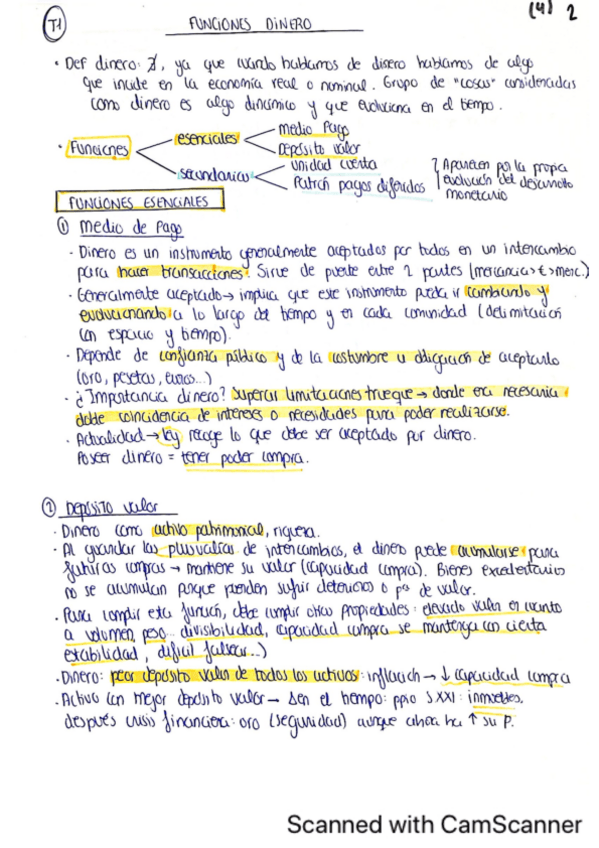 T1
FUNCIONES DINERO
(4) 2
• Def dinero: ∄, ya que cuando hablamos de dinero hablamos de algo
que incide en la economía real o nominal. Grupo de "cosas" consideradas
como dinero es algo dinámico y que evoluciona en el tiempo.
• Funciones
esenciales
Medio Pago
Depósito valor
secundarias
unidad cuenta
Patrón pagos diferidos
Aparecen por la propia
evolución del desarrollo
monetario
FUNCIONES ESENCIALES
① Medio de Pago
· Dinero es un instrumento generalmente aceptados por todos en un intercambio
para hacer transacciones. Sirve de puente entre 2 partes (mercancía > € > merc.)
· Generalmente aceptado → implica que este instrumento pueda ir cambiando y
evolucionando a lo largo del tiempo y en cada comunidad (delimitación
en espacio y tiempo).
· Depende de confianza público y de la costumbre u obligación de aceptarlo
(oro, pesetas, euros...)
· ¿Importancia dinero? Superar limitaciones trueque → donde era necesaria
doble coincidencia de intereses o necesidades para poder realizarse.
· Actualidad → ley recoge lo que debe ser aceptado por dinero.
Poseer dinero = tener poder compra.
② Depósito valor
· Dinero como activo patrimonial, riqueza.
· Al guardar las plusvalías de intercambios, el dinero puede acumularse para
futuras compras → mantiene su valor (capacidad compra). Bienes excedentarios
no se acumulan porque pueden sufrir deterioros o pª de valor.
· Para cumplir esta función, debe cumplir otras propiedades: elevado valor en cuanto
a volumen, peso... divisibilidad, capacidad compra se mantenga con cierta
estabilidad, difícil falsear...)
· Dinero: peor depósito valor de todos los activos: inflación → ↓ capacidad compra
· Activo con mejor depósito valor → en el tiempo: ppio S XXI: inmuebles,
después crisis financiera: oro (seguridad) aunque ahora ha ↑ su P.
Scanned with CamScanner